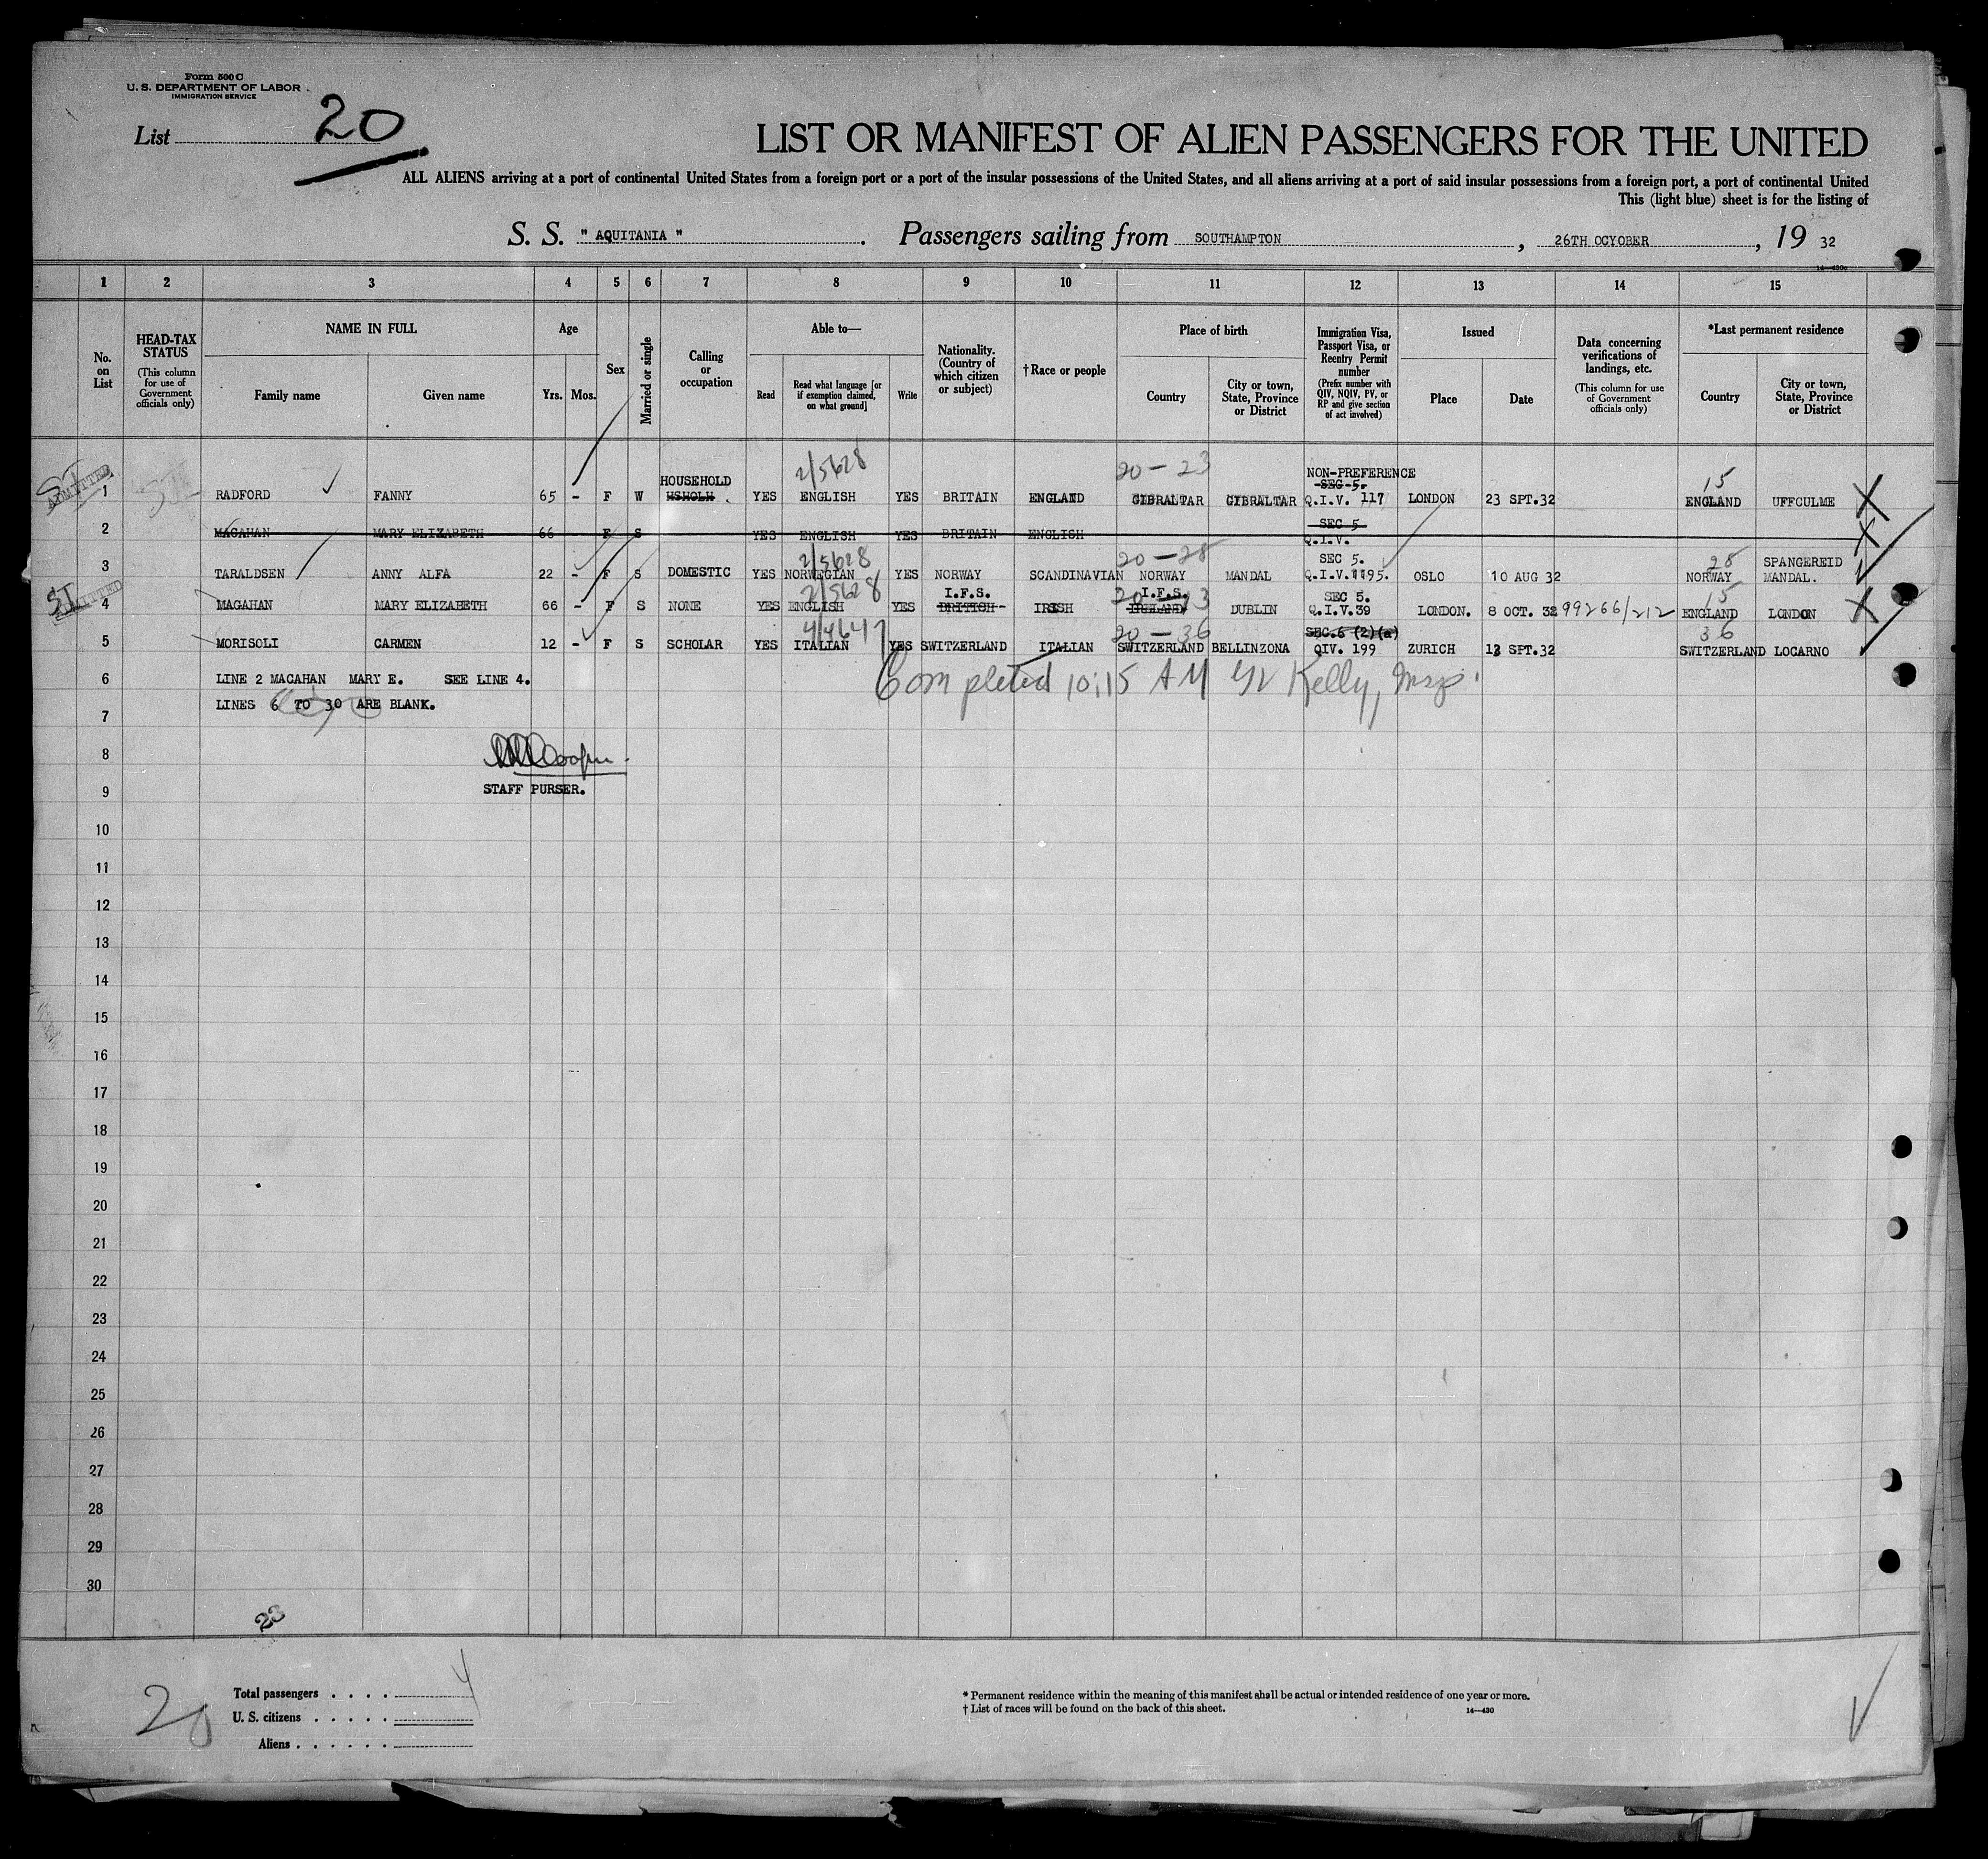 Form 500 C
U. S. DEPARTMENT OF LABOR
IMMIGRATION SERVICE
List 20
LIST OR MANIFEST OF ALIEN PASSENGERS FOR THE UNITED
ALL ALIENS arriving at a port of continental United States from a foreign port or a port of the insular possessions of the United States, and all aliens arriving at a port of said insular possessions from a foreign port, a port of continental United
This (light blue) sheet is for the listing of
S. S. " AQUITANIA ". Passengers sailing from SOUTHAMPTON, 26TH OCYOBER, 19 32
14—430a
1 2 3 4 5 6 7 8 9 10 11 12 13 14 15
No. on List
HEAD-TAX STATUS (This column for use of Government officials only)
NAME IN FULL
Family name Given name
Age
Yrs. Mos.
Sex
Married or single
Calling or occupation
Able to—
Read Read what language [or if exemption claimed, on what ground] Write
Nationality. (Country of which citizen or subject)
†Race or people
Place of birth
Country City or town, State, Province or District
Immigration Visa, Passport Visa, or Reentry Permit number (Prefix number with QIV, NQIV, PV, or RP and give section of act involved)
Issued
Place Date
Data concerning verifications of landings, etc. (This column for use of Government officials only)
*Last permanent residence
Country City or town, State, Province or District
2/5628 20 - 23
HOUSEHOLD NON-PREFERENCE 15
ADMITTED SI SEC 5.
1 RADFORD FANNY 65 - F W YES ENGLISH YES BRITAIN ENGLAND GIBRALTAR GIBRALTAR Q.I.V. 117 LONDON 23 SPT.32 ENGLAND UFFCULME X
SEC 5
2 MAGAHAN MARY ELIZABETH 66 F S YES ENGLISH YES BRITAIN ENGLISH Q.I.V. X
2/5628 20 - 28 SEC 5. 28 SPANGEREID
3 TARALDSEN ANNY ALFA 22 - F S DOMESTIC YES NORWEGIAN YES NORWAY SCANDINAVIAN NORWAY MANDAL Q.I.V.1195. OSLO 10 AUG 32 NORWAY MANDAL.
ADMITTED SI 2/5628 I.F.S. I.F.S. 20 - 13 SEC 5. 15
4 MAGAHAN MARY ELIZABETH 66 - F S NONE YES ENGLISH YES BRITISH IRISH DUBLIN Q.I.V.39 LONDON. 8 OCT. 32 99266/212 ENGLAND LONDON X
4/4647 20 - 36 SEC.6 (2)(a) 36
5 MORISOLI CARMEN 12 - F S SCHOLAR YES ITALIAN YES SWITZERLAND ITALIAN SWITZERLAND BELLINZONA QIV. 199 ZURICH 13 SPT.32 SWITZERLAND LOCARNO
6 LINE 2 MACAHAN MARY E. SEE LINE 4. Completed 10:15 AM Kelly, Insp.
LINES 6 TO 30 ARE BLANK.
7
8
STAFF PURSER.
9
10
11
12
13
14
15
16
17
18
19
20
21
22
23
24
25
26
27
28
29
30
23
20
Total passengers . . . . 4
U. S. citizens . . . . .
Aliens . . . . . .
* Permanent residence within the meaning of this manifest shall be actual or intended residence of one year or more.
† List of races will be found on the back of this sheet. 14—430